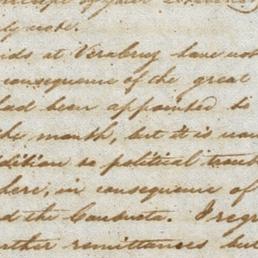 nds at Veracruz have not
consequence of the great
had been appointed to
the month, but it is
dition to political
here, in consequence of
d the Conducta. I regr
rther remittances but